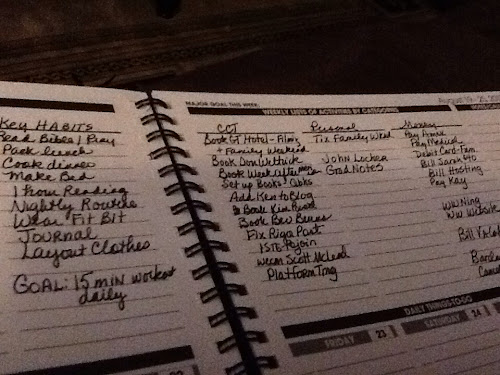 Key HABITS
Read Bible / Pray
Pack Lunch
Cook dinner
Make Bed
1 hour Reading
Nightly Routine
Wear Fit Bit
JOURNAL
Layout Clothes
GOAL: 15 min workout
daily
MAJOR GOAL THIS WEEK:
WEEKLY LISTS OF ACTIVITIES BY CATEGORIES
CCT
Book GT Hotel -
+ Family Weekend
Book Don
Book Week after
Set up Books
Add Ken to Blog
Book Kim
Book Bev
Fix Riga Post
ISTE-Rejoin
Scott McLeod
Platform Trng
Personal
Tix Family Wknd
JOHN Locker
Grad Notes
Money
Pay
Pay Medical
Debit Card-
Bill Sarah
Bill Hosting
Pay Kay
WW Ning
WW Website
Bill
DAILY THINGS-TO-GO
FRIDAY 23
SATURDAY 24